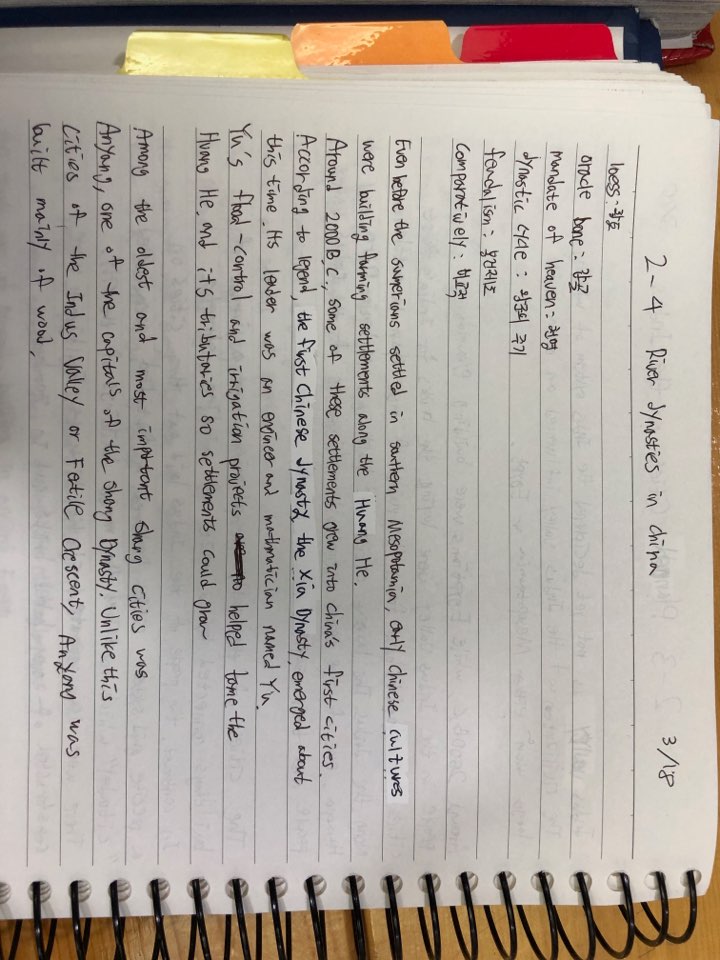 2-4 River dynasties in china 3/18
loess: 황토
oracle bone: 갑골
mandate of heaven: 천명
dynastic cycle: 왕조의 주기
feudalism: 봉건제도
Comparatively: 비교적
Even before the sumerians settled in southern Mesopotamia, early chinese cultures
were building farming settlements along the Huang He.
Around 2000 B.C., some of these settlements grew into china's first cities.
According to legend, the first chinese dynasty, the Xia Dynasty, emerged about
this time. Its leader was an engineer and mathmatician named Yu.
Yu's flood-control and irrigation projects helped tame the
Huang He and its tributaries so settlements could grow
Among the oldest and most important Shang cities was
Anyang, one of the capitals of the Shang Dynasty. Unlike this
Cities of the Indus Valley or Fertile Crescent, Anyang was
built mainly of wood.